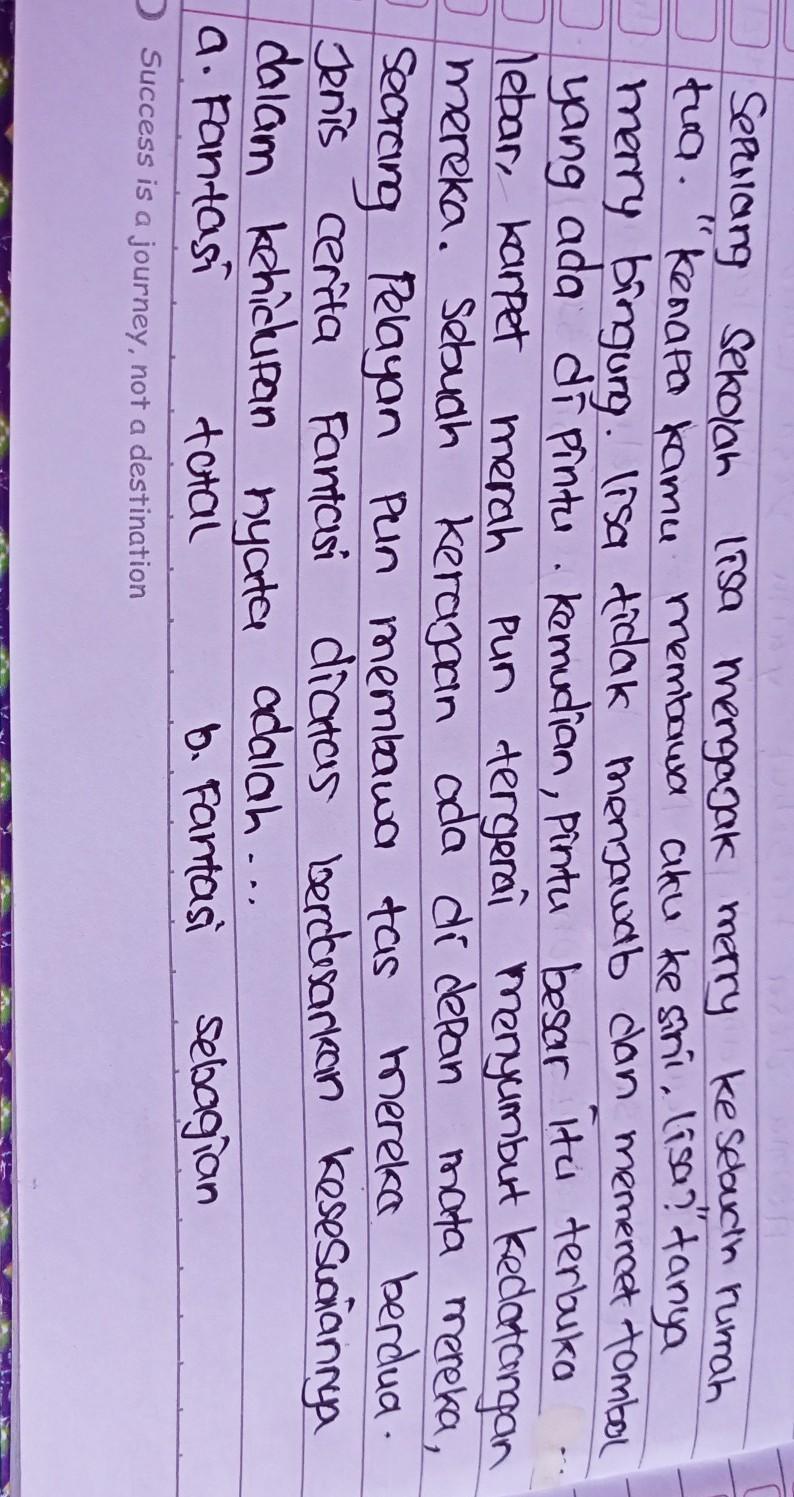 Sepulang sekolah lisa mengajak merry ke sebuah rumah
tua. "kenapa kamu membawa aku ke sini, lisa?" tanya
merry bingung. lisa tidak menjawab dan memencet tombol
yang ada di pintu. kemudian, pintu besar itu terbuka
lebar, karpet merah pun tergerai menyambut kedatangan
mereka. Sebuah kerajaan ada di depan mata mereka,
Seorang pelayan pun membawa tas mereka berdua.
Jenis cerita Fantasi diatas berdasarkan kesesuaiannya
dalam kehidupan nyata adalah...
a. Fantasi total b. Fantasi sebagian
Success is a journey, not a destination